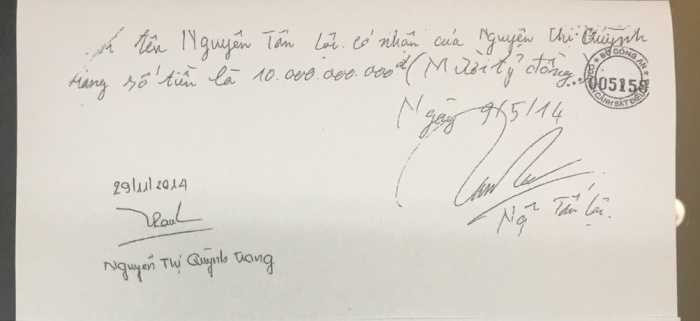 tên Nguyễn Tấn Lợi. có nhận của Nguyễn Thị Quỳnh
trang số tiền là 10.000.000.000đ (Mười tỷ đồng)
BỘ CÔNG AN
005159
CẢNH SÁT ĐIỀU
Ngày 9/5/14
Ng~ Tấn Lợi.
29/11/2014
Nguyễn Thị Quỳnh Trang